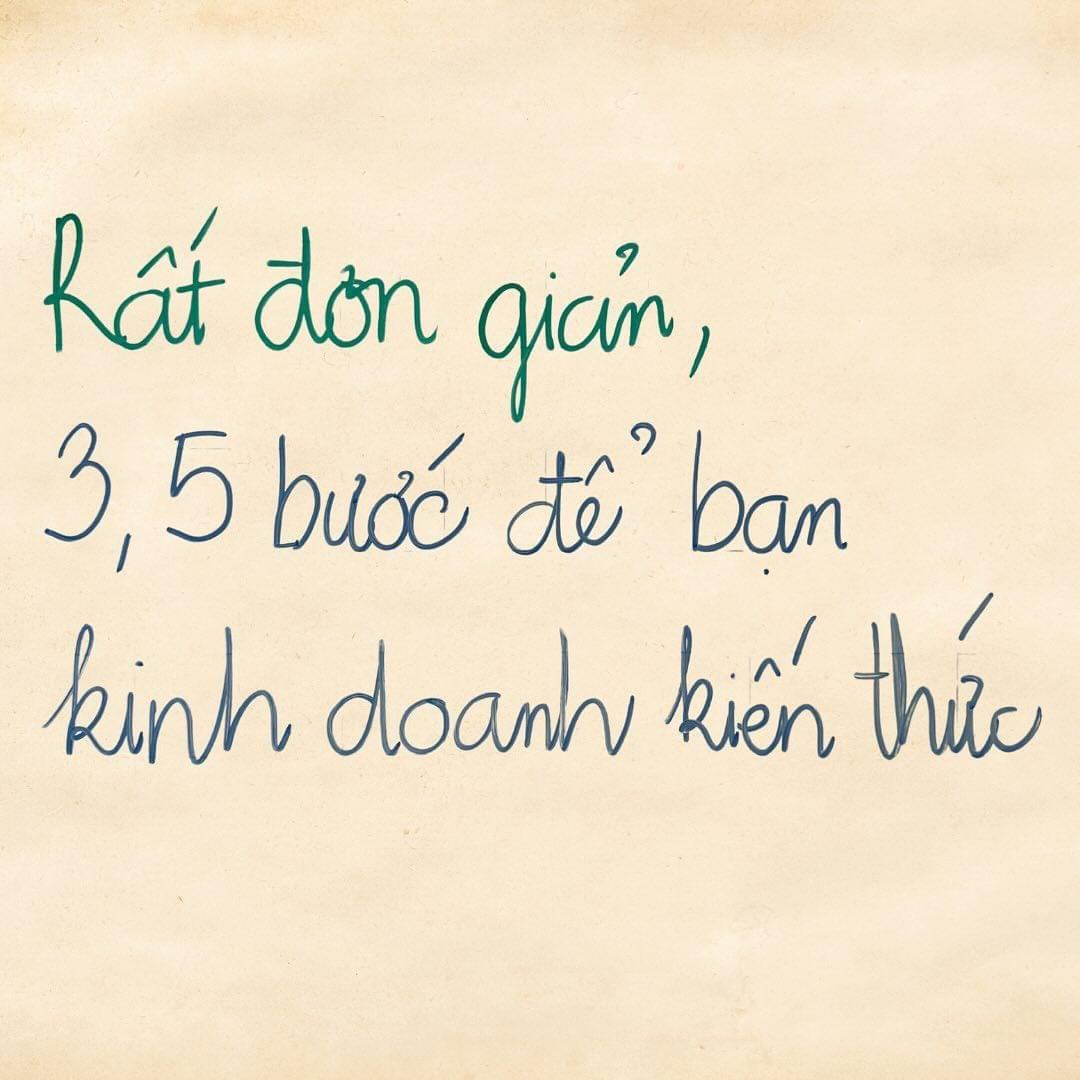 Rất đơn giản,
3,5 bước để bạn
kinh doanh kiến thức